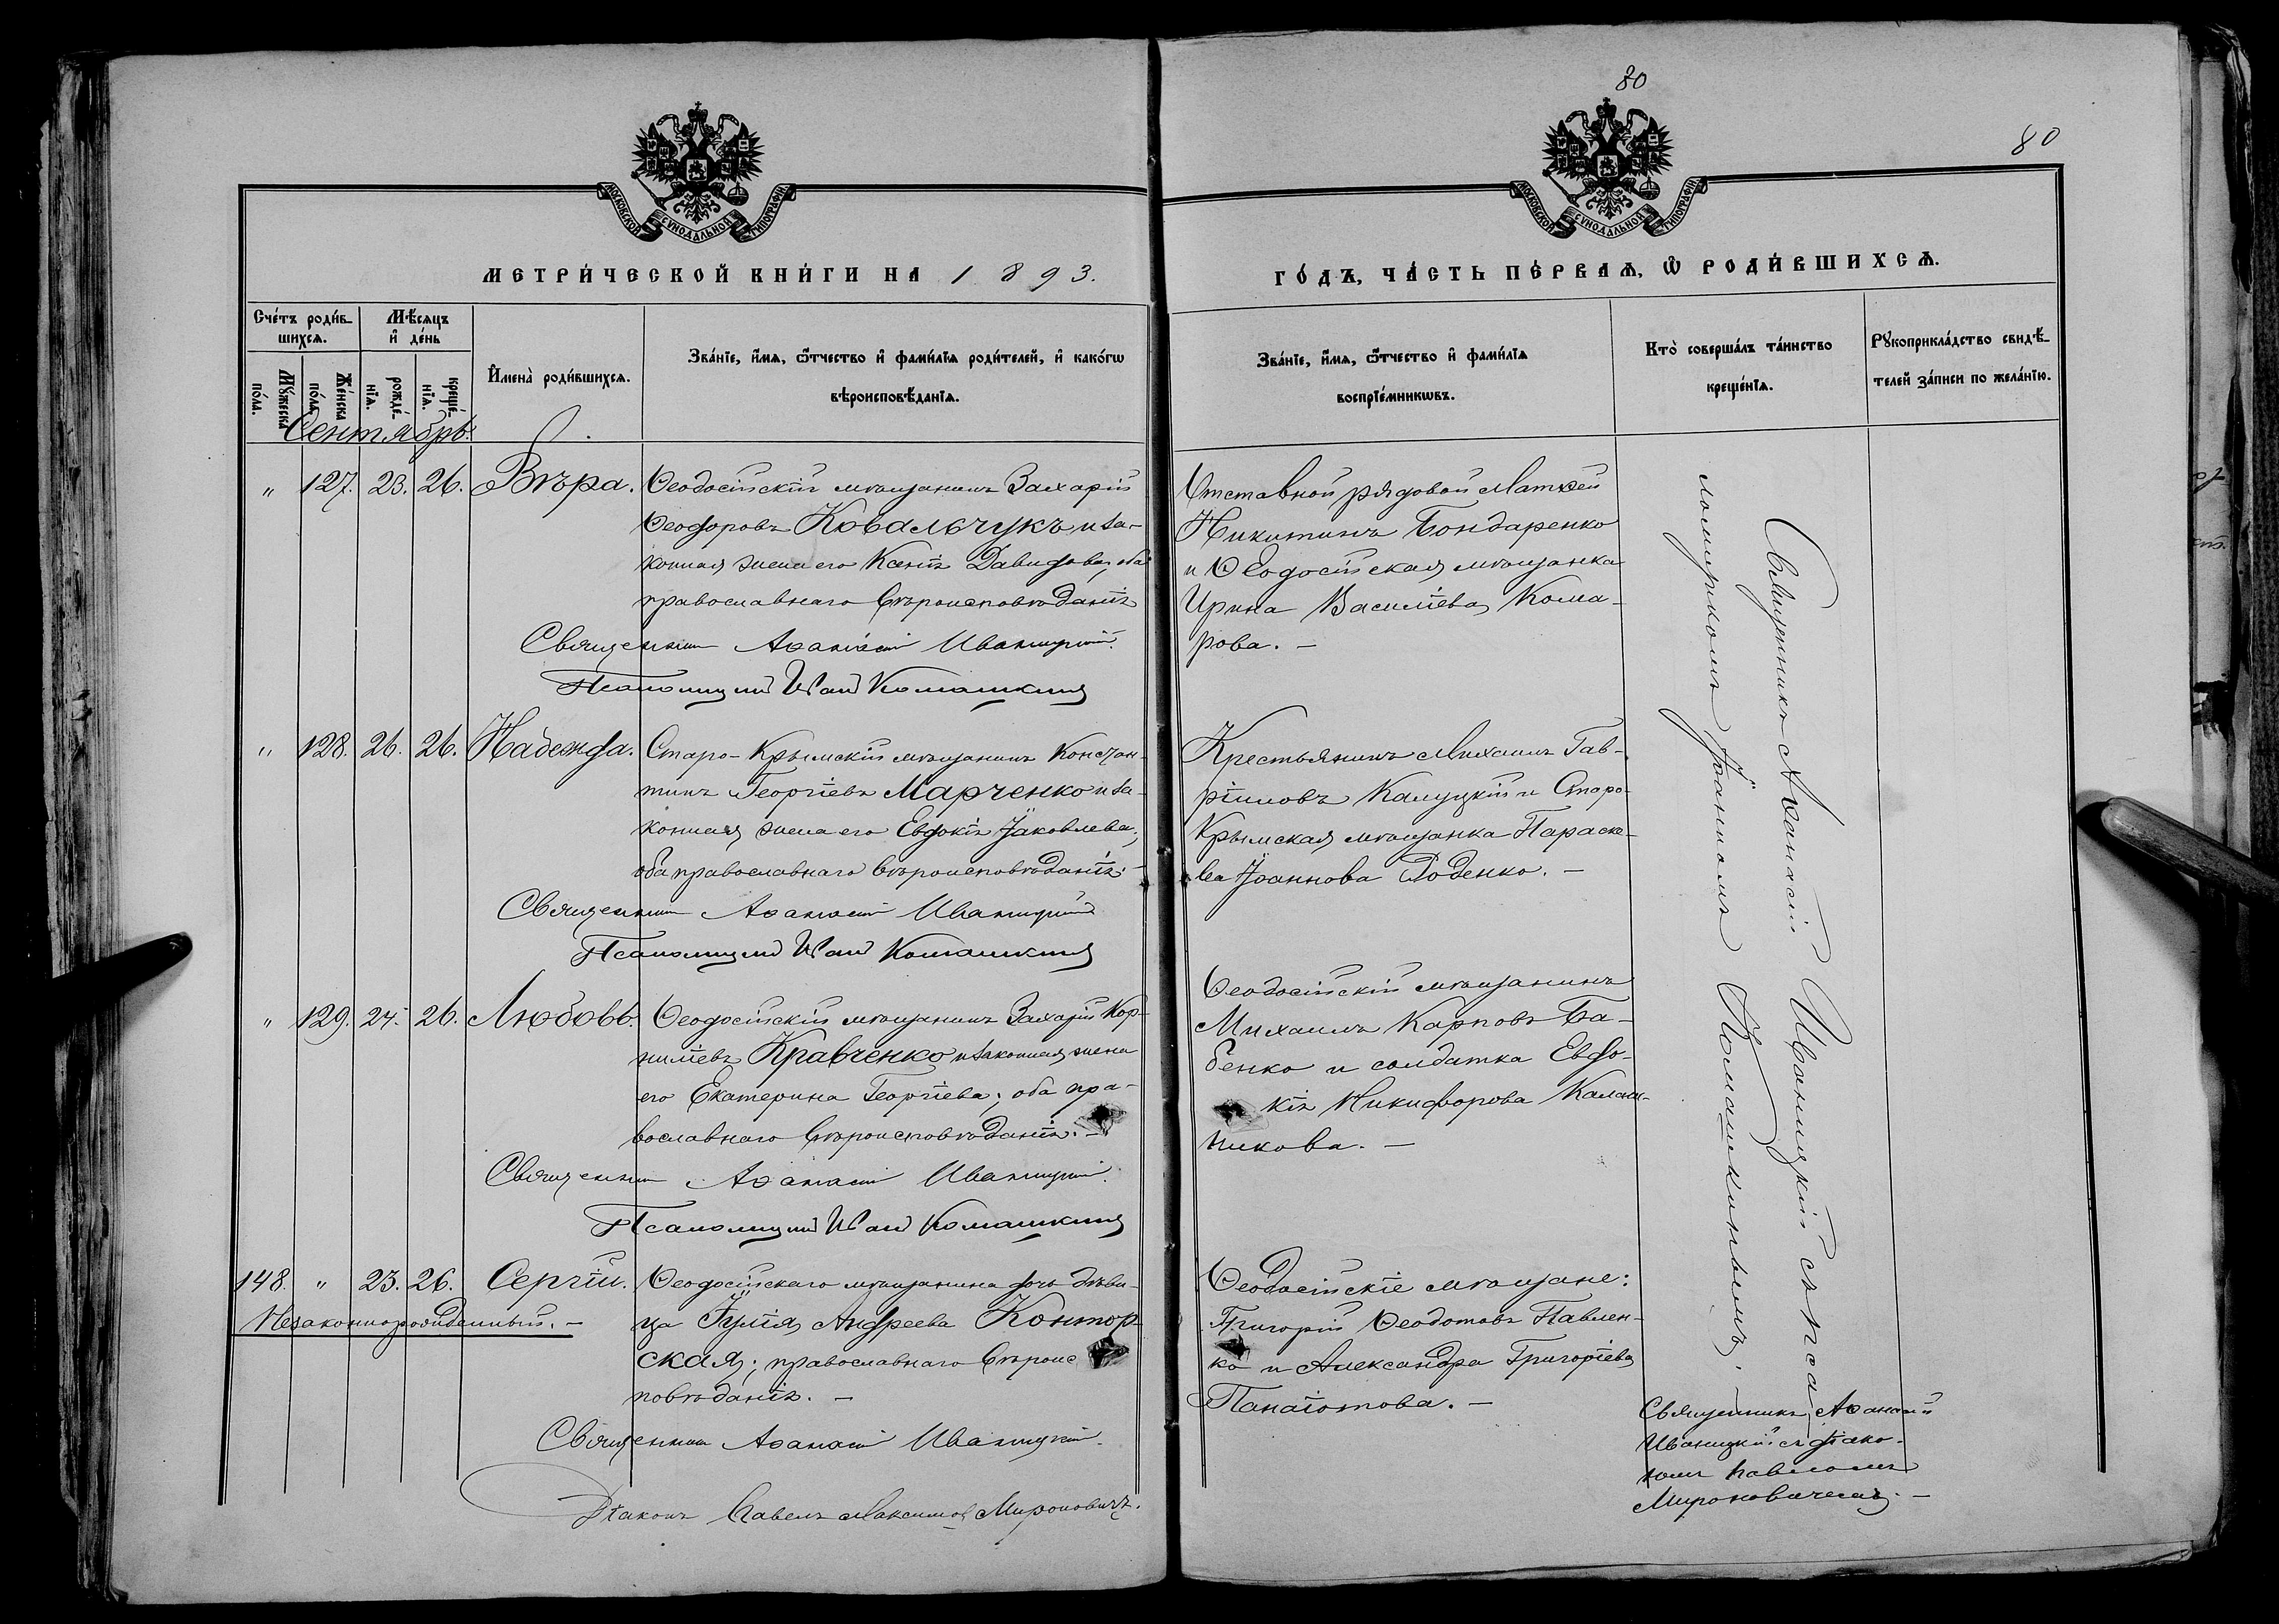 80
80
МОСКОВСКОЙ СѴНОДАЛЬНОЙ ТИПОГРАФІИ
МОСКОВСКОЙ СѴНОДАЛЬНОЙ ТИПОГРАФІИ
МЕТРИ́ЧЕСКОЙ КНИ́ГИ НА 1893.
ГО́ДЪ, ЧА́СТЬ ПЕ́РВАѦ, Ѽ РОДИ́ВШИХСѦ.
Сче́тъ роди́в-
шихсѧ.
Мѣ́сѧцъ
и҆ де́нь
Мꙋ́жеска
по́ла.
Же́нска
по́ла.
рожде́-
нїѧ.
креще́-
нїѧ.
И҆мена̀ роди́вшихсѧ.
Зва́нїе, и҆́мѧ, ѻ҆́тчество и҆ фами́лїѧ роди́телей, и҆ како́гѡ
вѣроисповѣ́данїѧ.
Зва́нїе, и҆́мѧ, ѻ҆́тчество и҆ фами́лїѧ
воспрїе́мникѡвъ.
Кто̀ соверша́лъ та́инство
креще́нїѧ.
Рꙋкоприкла́дство свидѣ́-
телей за́писи по жела́нїю.
Сентябрь.
" 127. 23. 26. Вѣра. Ѳеодосійскій мѣщанинъ Захарій
Ѳеодоровъ Ковальчукъ и за-
конная жена его Ксенія Давидова, оба
православнаго вѣроисповѣданія
Священникъ Аѳанасій Иваницкій.
Псаломщикъ Иван Комашкинъ
Отставной рядовой Матѳей
Никитинъ Бондаренко
и Ѳеодосійская мѣщанка
Ирина Василіева Кома-
рова. —
" 128. 26. 26. Надежда. Старо-Крымскій мѣщанинъ Констан-
тинъ Георгіевъ Марченко и за-
конная жена его Евдокія Іаковлева,
оба православнаго вѣроисповѣданія. —
Священникъ Аѳанасій Иваницкій
Псаломщикъ Иван Комашкинъ
Крестьянинъ Михаилъ Гав-
ріиловъ Калуцкій и Старо-
Крымская мѣщанка Параске-
ва Іоаннова Роденко. —
" 129. 24. 26. Любовь. Ѳеодосійскій мѣщанинъ Захарій Кор-
ниліевъ Кравченко и законная жена
его Екатерина Георгіева; оба пра-
вославнаго вѣроисповѣданія. —
Священникъ Аѳанасій Иваницкій.
Псаломщикъ Иван Комашкинъ
Ѳеодосійскій мѣщанинъ
Михаилъ Карповъ Ба-
бенко и солдатка Евдо-
кія Никифорова Калаш-
никова. —
148. " 23. 26. Сергій. Ѳеодосійскаго мѣщанина дочь дѣви-
Незаконнорожденный. — ца Іулія Андреева Контор-
ская; православнаго вѣроис
повѣданія. —
Священникъ Аѳанасій Иваницкій.
Діаконъ Павелъ Максимов Мироновичъ.
Ѳеодосійскіе мѣщане:
Григорій Ѳеодотовъ Павлен-
ко и Александра Григоріева
Панаіотова. —
Священникъ Аѳанасій Иваницкій съ пса-
ломщикомъ Іоанномъ Комашкинымъ.
Священникъ Аѳанасій
Иваницкій съ діако-
номъ Павломъ
Мироновичемъ. —